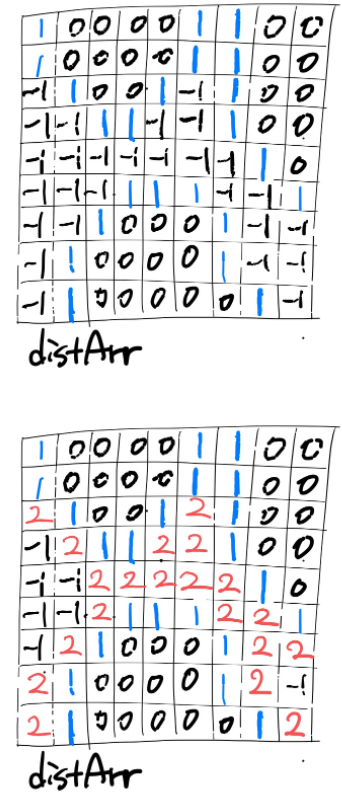 1 0 0 0 0 1 1 0 0
1 0 0 0 0 1 1 0 0
-1 1 0 0 1 -1 1 0 0
-1 -1 1 1 -1 -1 1 0 0
-1 -1 -1 -1 -1 -1 -1 1 0
-1 -1 -1 1 1 1 -1 -1 1
-1 -1 1 0 0 0 1 -1 -1
-1 1 0 0 0 0 1 -1 -1
-1 1 0 0 0 0 0 1 -1
distArr
1 0 0 0 0 1 1 0 0
1 0 0 0 0 1 1 0 0
2 1 0 0 1 2 1 0 0
-1 2 1 1 2 2 1 0 0
-1 -1 2 2 2 2 2 1 0
-1 -1 2 1 1 1 2 2 1
-1 2 1 0 0 0 1 2 2
2 1 0 0 0 0 1 2 -1
2 1 0 0 0 0 0 1 2
distArr